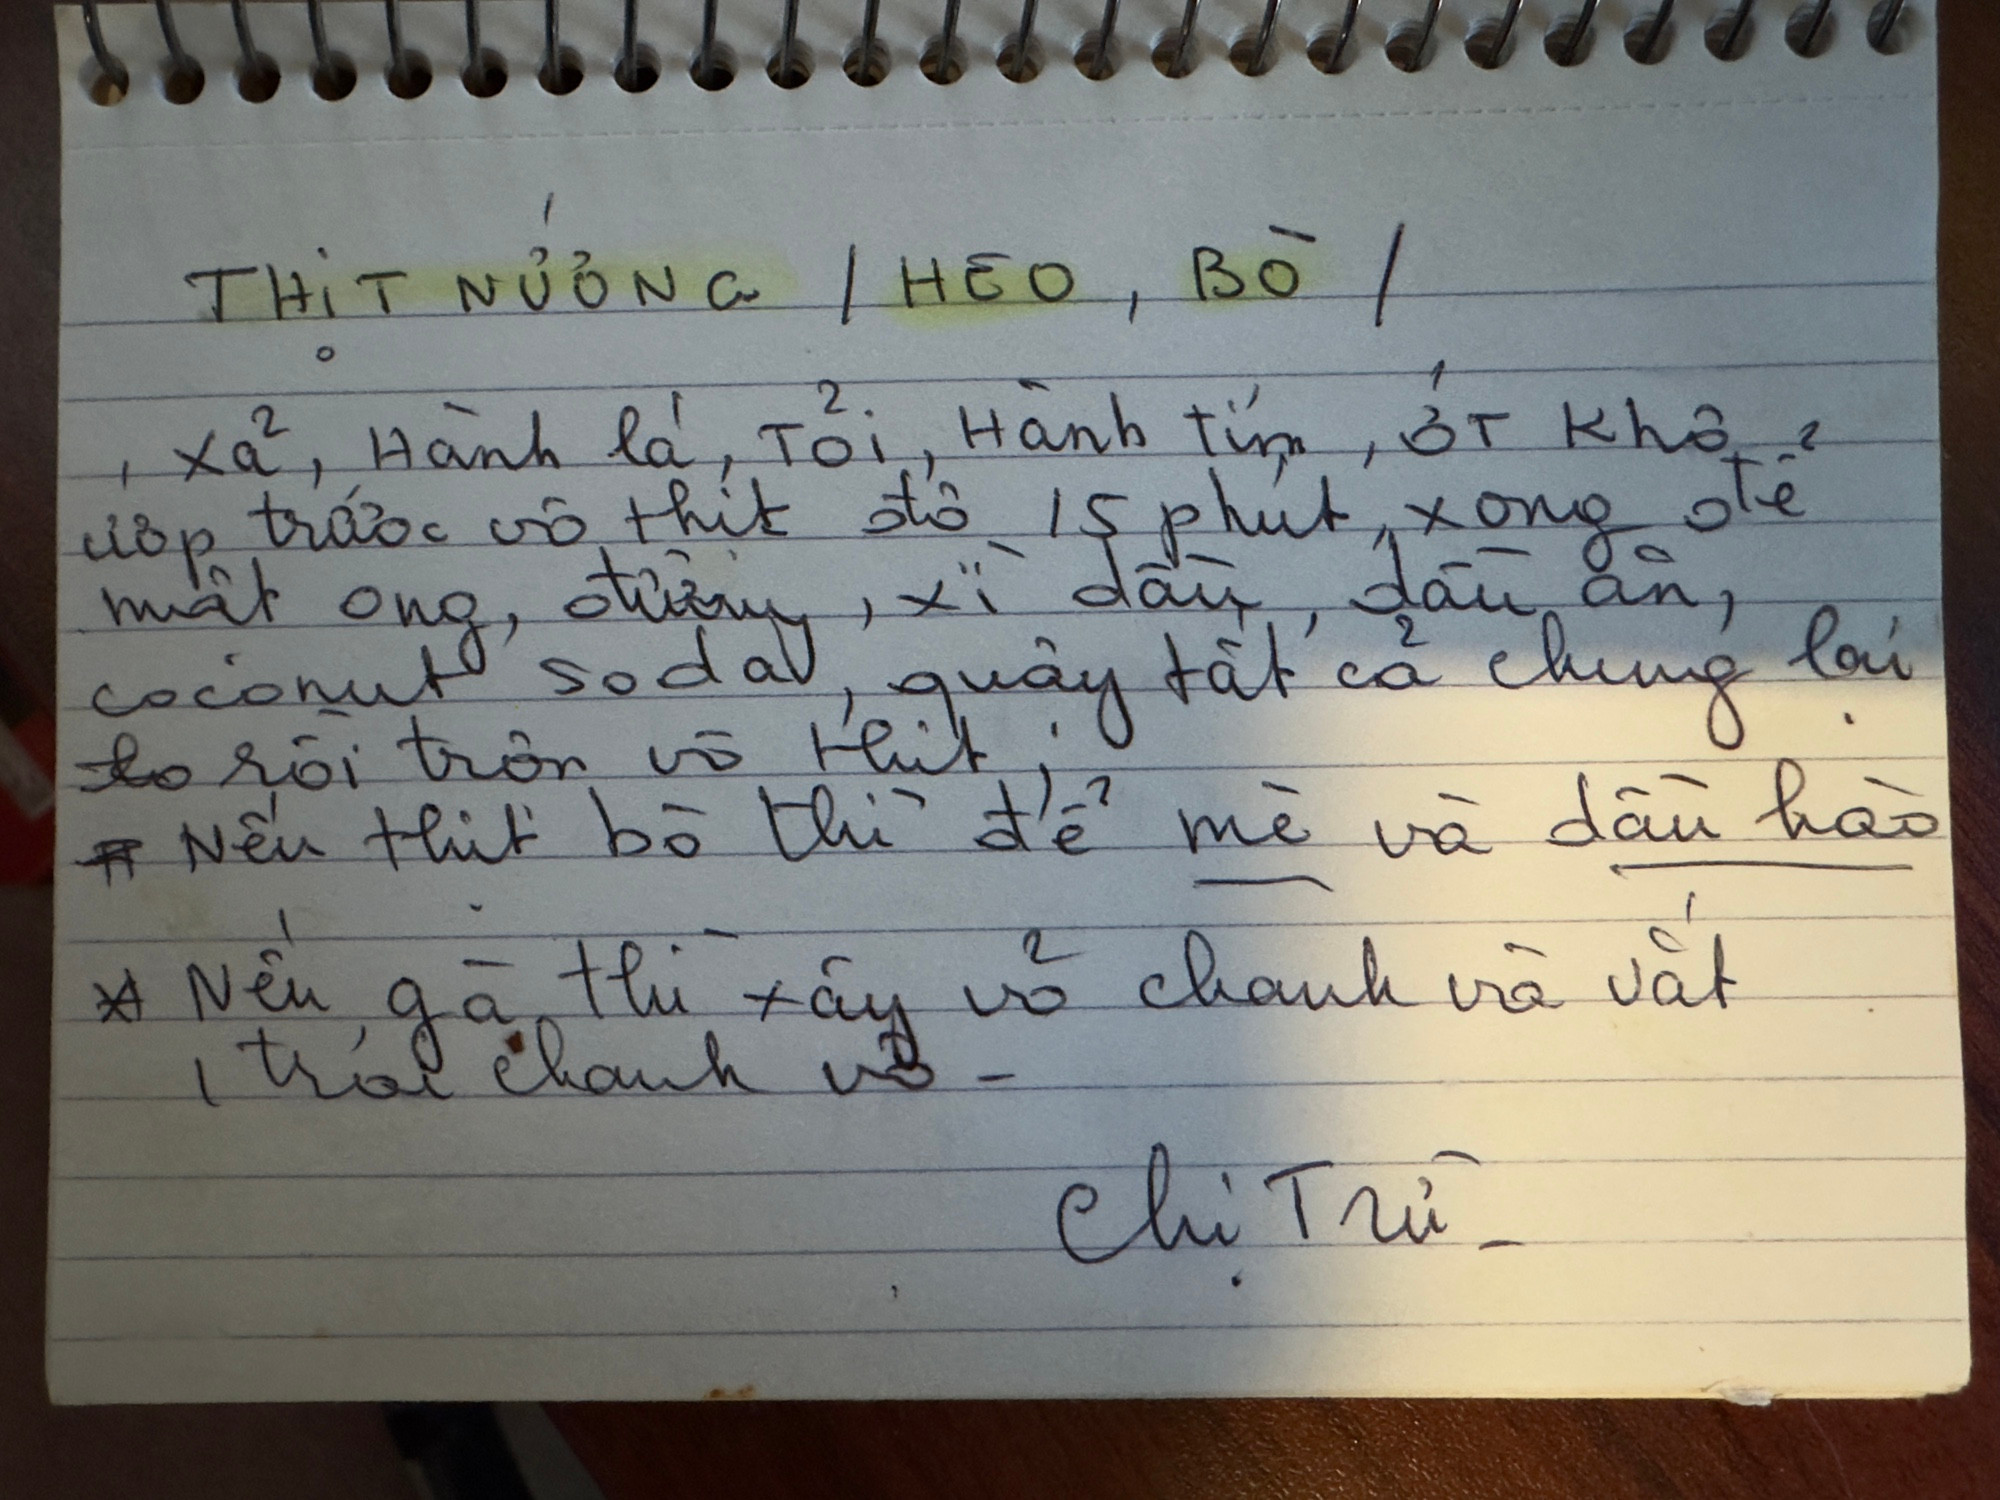 THỊT NƯỚNG / HEO, BÒ /
, xả, Hành lá, Tỏi, Hành tím, ớT khô
ướp trước vô thịt độ 15 phút, xong để
mật ong, đường, xì dầu, dầu ăn,
coconut soda, quậy tất cả chung lại
rồi trộn vô thịt,
* Nếu thịt bò thì để mè và dầu hào
* Nếu gà thì xây vỏ chanh và vắt
1 trái chanh vô -
Chị Trừ -